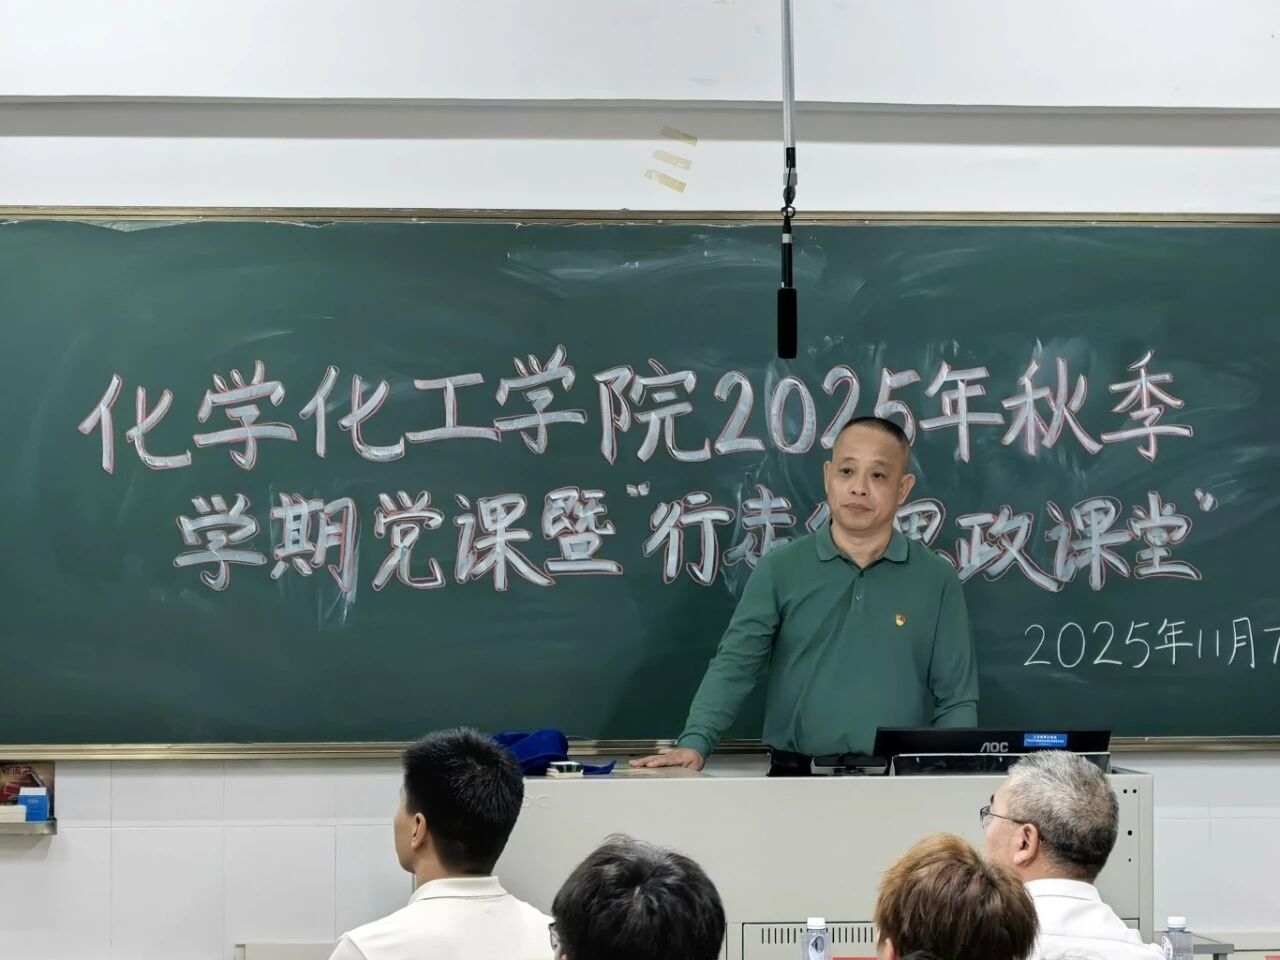 化学化工学院2025年秋季
学期党课暨“行走 思政课堂”
2025年11月
AOC